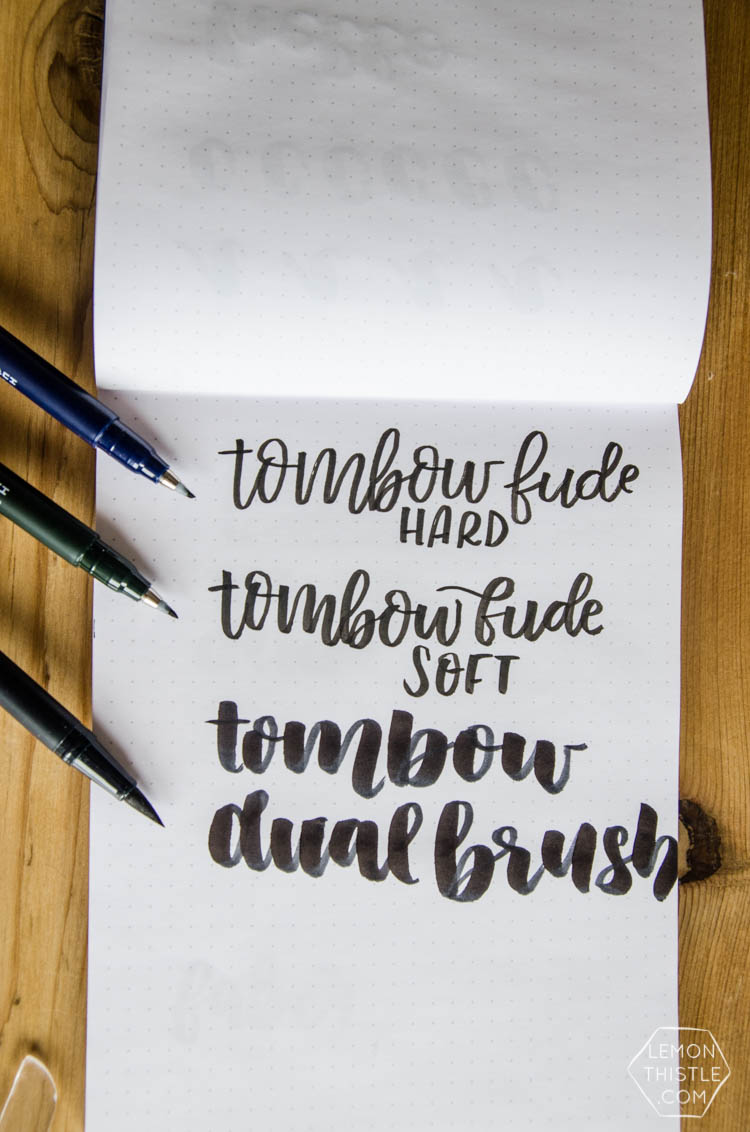 tombow fude
HARD
tombow fude
SOFT
tombow
dual brush
LEMON
THISTLE
.COM